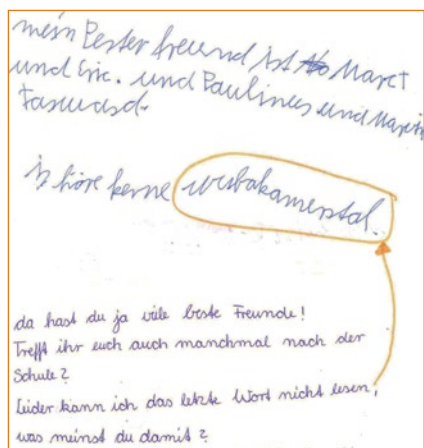 mein Bester freund ist Maret
und Eric. und Paulines und Marein
is höre kerne wubakamental.
da hast du ja viele beste Freunde!
Trefft ihr euch auch manchmal nach der
Schule?
Leider kann ich das letzte Wort nicht lesen,
was meinst du damit?